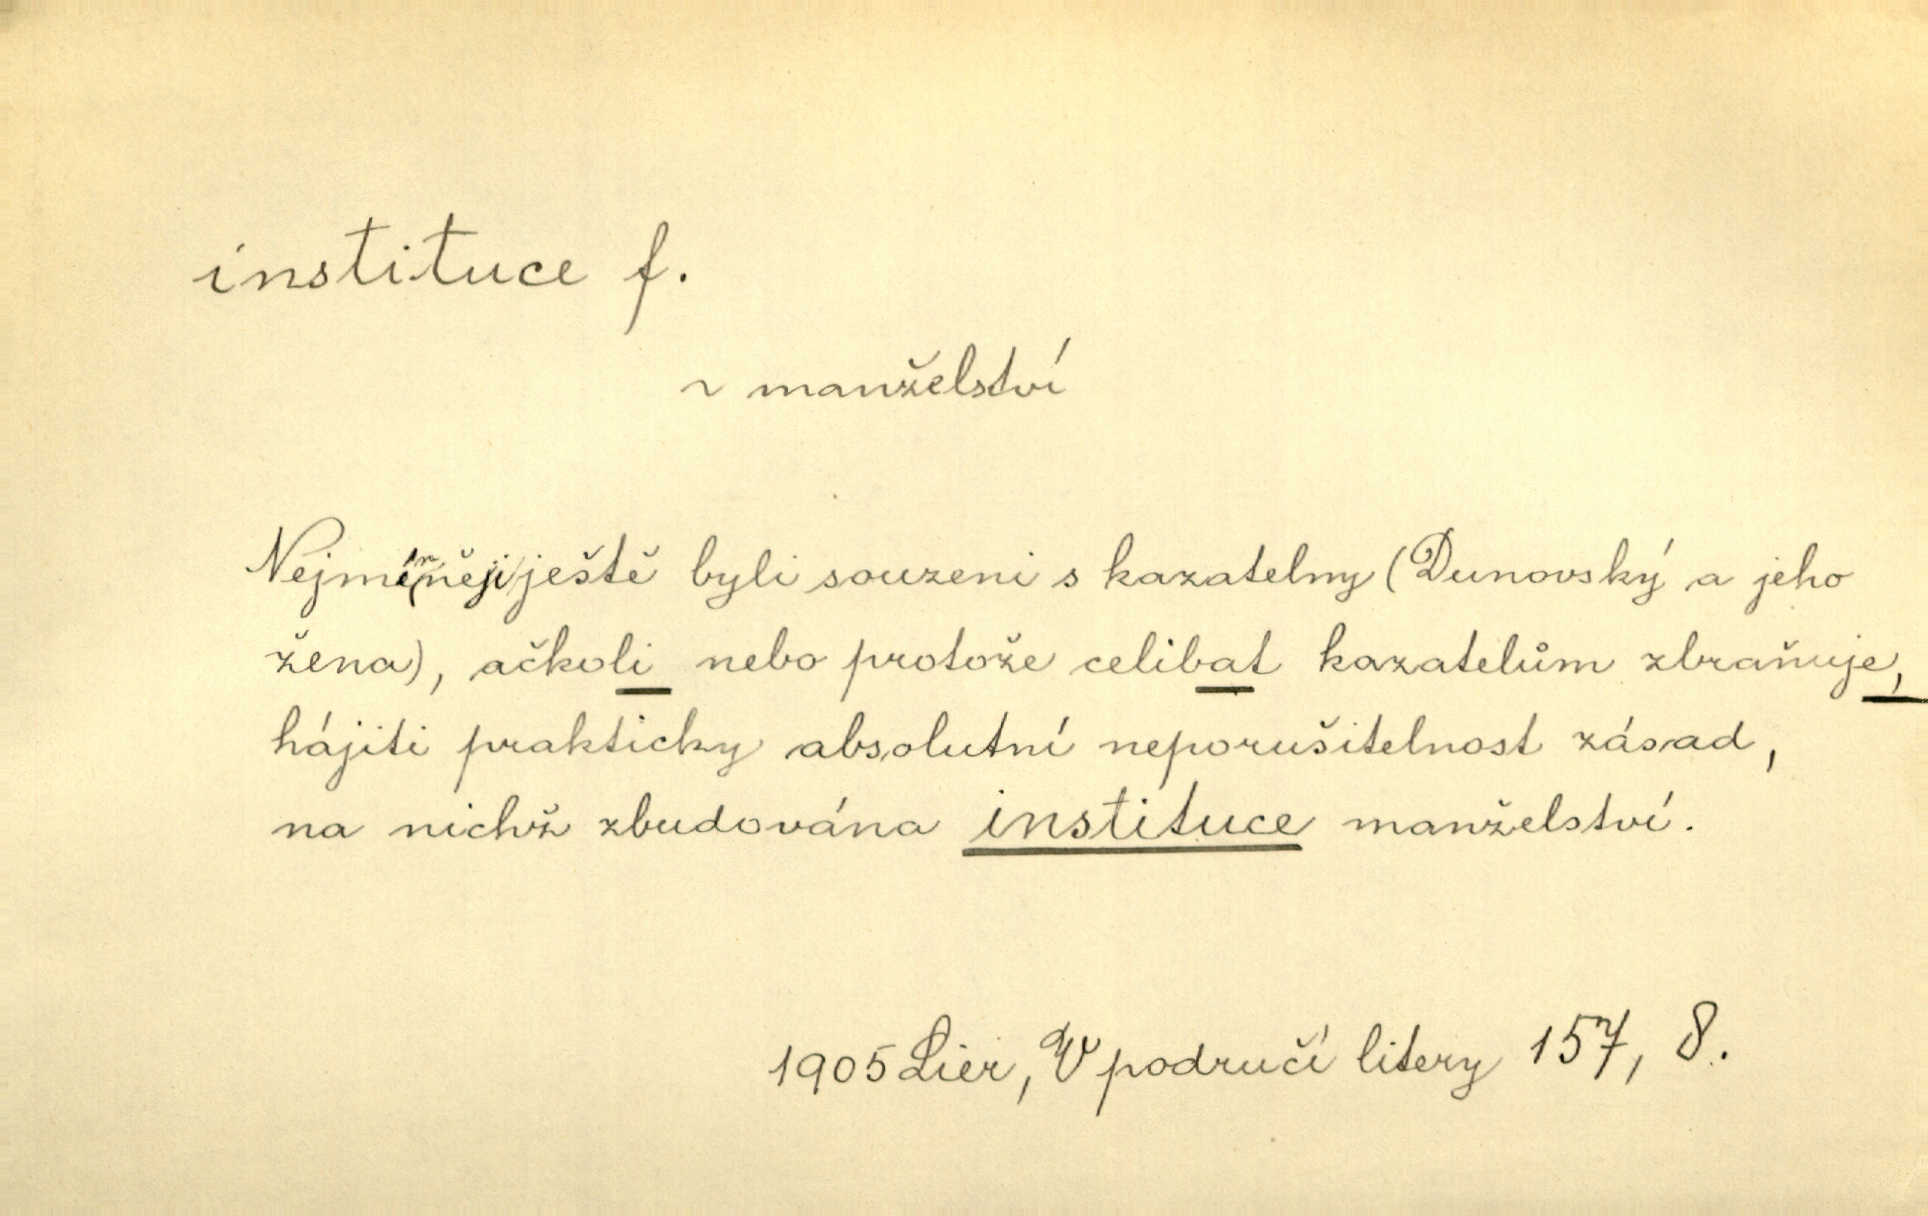 instituce f.
~ manželství
Nejmírněji ještě byli souzeni s kazatelny (Dunovský a jeho
žena), ačkoli nebo protože celibat kazatelům zbraňuje,
hájiti prakticky absolutní neporušitelnost zásad,
na nichž zbudována instituce manželství.
1905 Lier, V područí litery 157, 8.